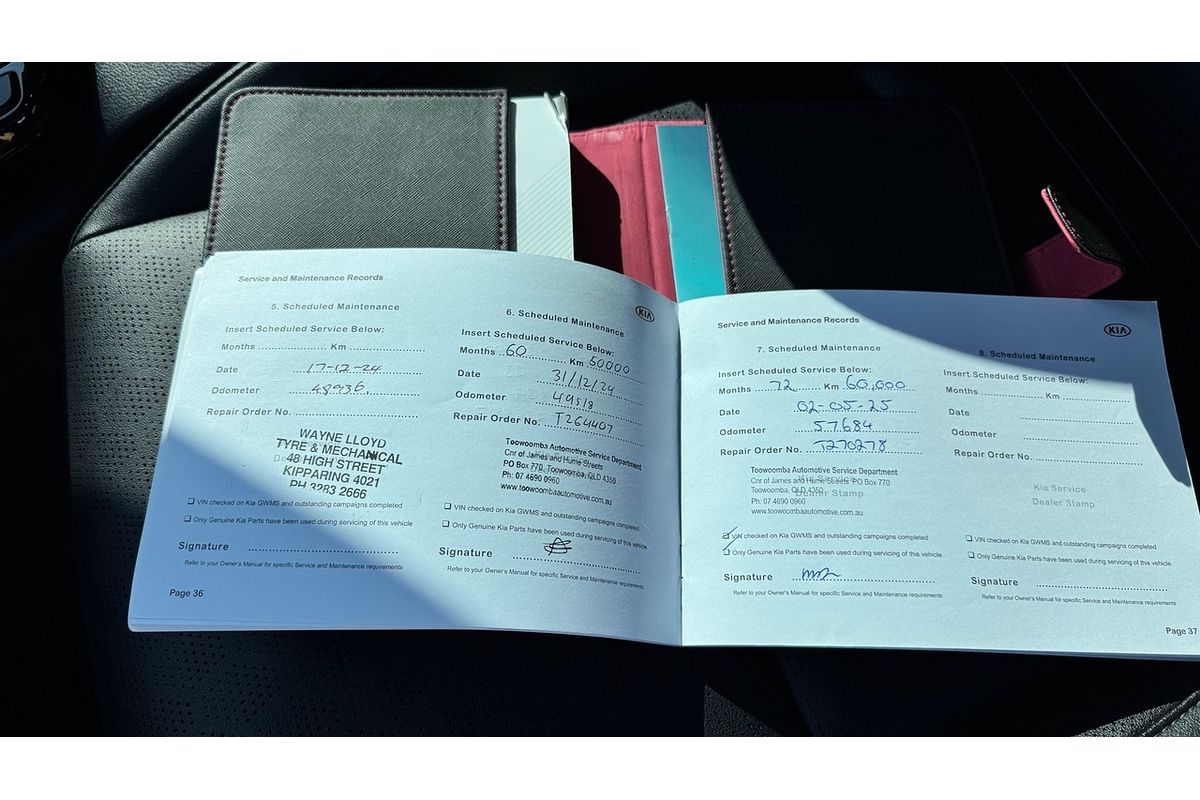 Service and Maintenance Records
5. Scheduled Maintenance
Insert Scheduled Service Below:
Months Km
Date 17-12-24
Odometer 48936.
Repair Order No.
WAYNE LLOYD
TYRE & MECHANICAL
48 HIGH STREET
KIPPARING 4021
PH 3283 2666
VIN checked on Kia GWMS and outstanding campaigns completed
Only Genuine Kia Parts have been used during servicing of this vehicle
Signature
Refer to your Owner's Manual for specific Service and Maintenance requirements
Page 36
KIA
6. Scheduled Maintenance
Insert Scheduled Service Below:
Months 60 Km 50000
Date 31/12/24
Odometer 49518
Repair Order No. T264407
Toowoomba Automotive Service Department
Cnr of James and Hume Streets
PO Box 770, Toowoomba, QLD 4350
Ph: 07 4690 0960
www.toowoombaautomotive.com.au
VIN checked on Kia GWMS and outstanding campaigns completed
Only Genuine Kia Parts have been used during servicing of this vehicle
Signature
Refer to your Owner's Manual for specific Service and Maintenance requirements
Service and Maintenance Records
7. Scheduled Maintenance
Insert Scheduled Service Below:
Months 72 Km 60,000
Date 02-05-25
Odometer 57684
Repair Order No. T270278
Toowoomba Automotive Service Department
Cnr of James and Hume Streets PO Box 770
Toowoomba, QLD 4350
Dealer Stamp
Ph: 07 4690 0960
www.toowoombaautomotive.com.au
VIN checked on Kia GWMS and outstanding campaigns completed
Only Genuine Kia Parts have been used during servicing of this vehicle
Signature
Refer to your Owner's Manual for specific Service and Maintenance requirements
KIA
8. Scheduled Maintenance
Insert Scheduled Service Below:
Months Km
Date
Odometer
Repair Order No.
Kia Service
Dealer Stamp
VIN checked on Kia GWMS and outstanding campaigns completed
Only Genuine Kia Parts have been used during servicing of this vehicle
Signature
Refer to your Owner's Manual for specific Service and Maintenance requirements
Page 37